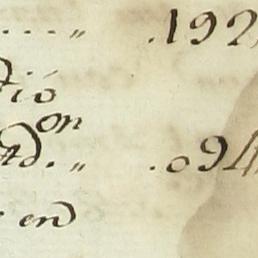 ....„ .192,
tió
on
td.„ .094
en